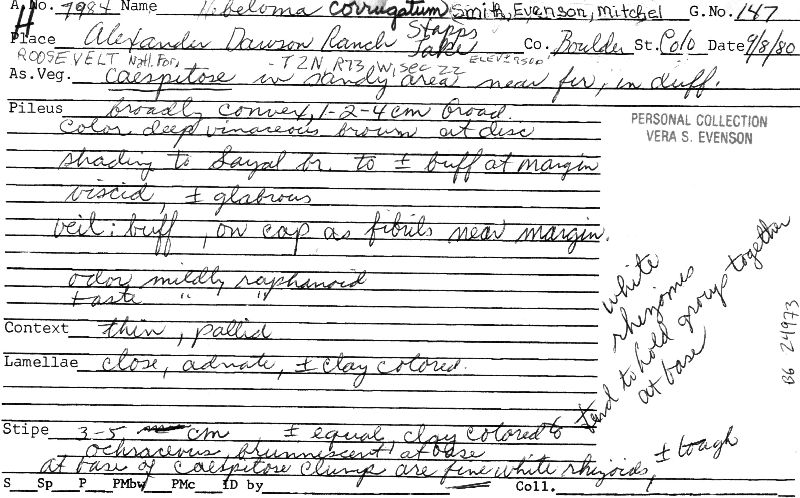 A. No. 7984 Name Hebeloma corrugatum Smith, Evenson, Mitchel G. No. 147
H
Place Alexander Dawson Ranch Stapps Lake Co. Boulder St. Colo Date 9/8/80
ROOSEVELT Natl. For. - T2N, R73 W, sec 22 ELEV: 9500
As. Veg. caespitose in sandy area near fir, in duff.
Pileus broadly convex, 1-2-4 cm broad.
PERSONAL COLLECTION
VERA S. EVENSON
color deep vinaceous brown at disc
shading to Sayal br. to ± buff at margin
viscid, ± glabrous
veil: buff, on cap as fibrils near margin.
odor mildly raphanoid
taste " "
Context thin, pallid
Lamellae close, adnate, ± clay colored.
white
rhizomes
tend to hold groups together
at base
B6 24973
Stipe 3-5 cm ± equal, clay colored to
ochraceous, brunnescent at base
at base of caespitose clump are fine white rhizoids, ± tough
S Sp P PMbw PMc ID by Coll.